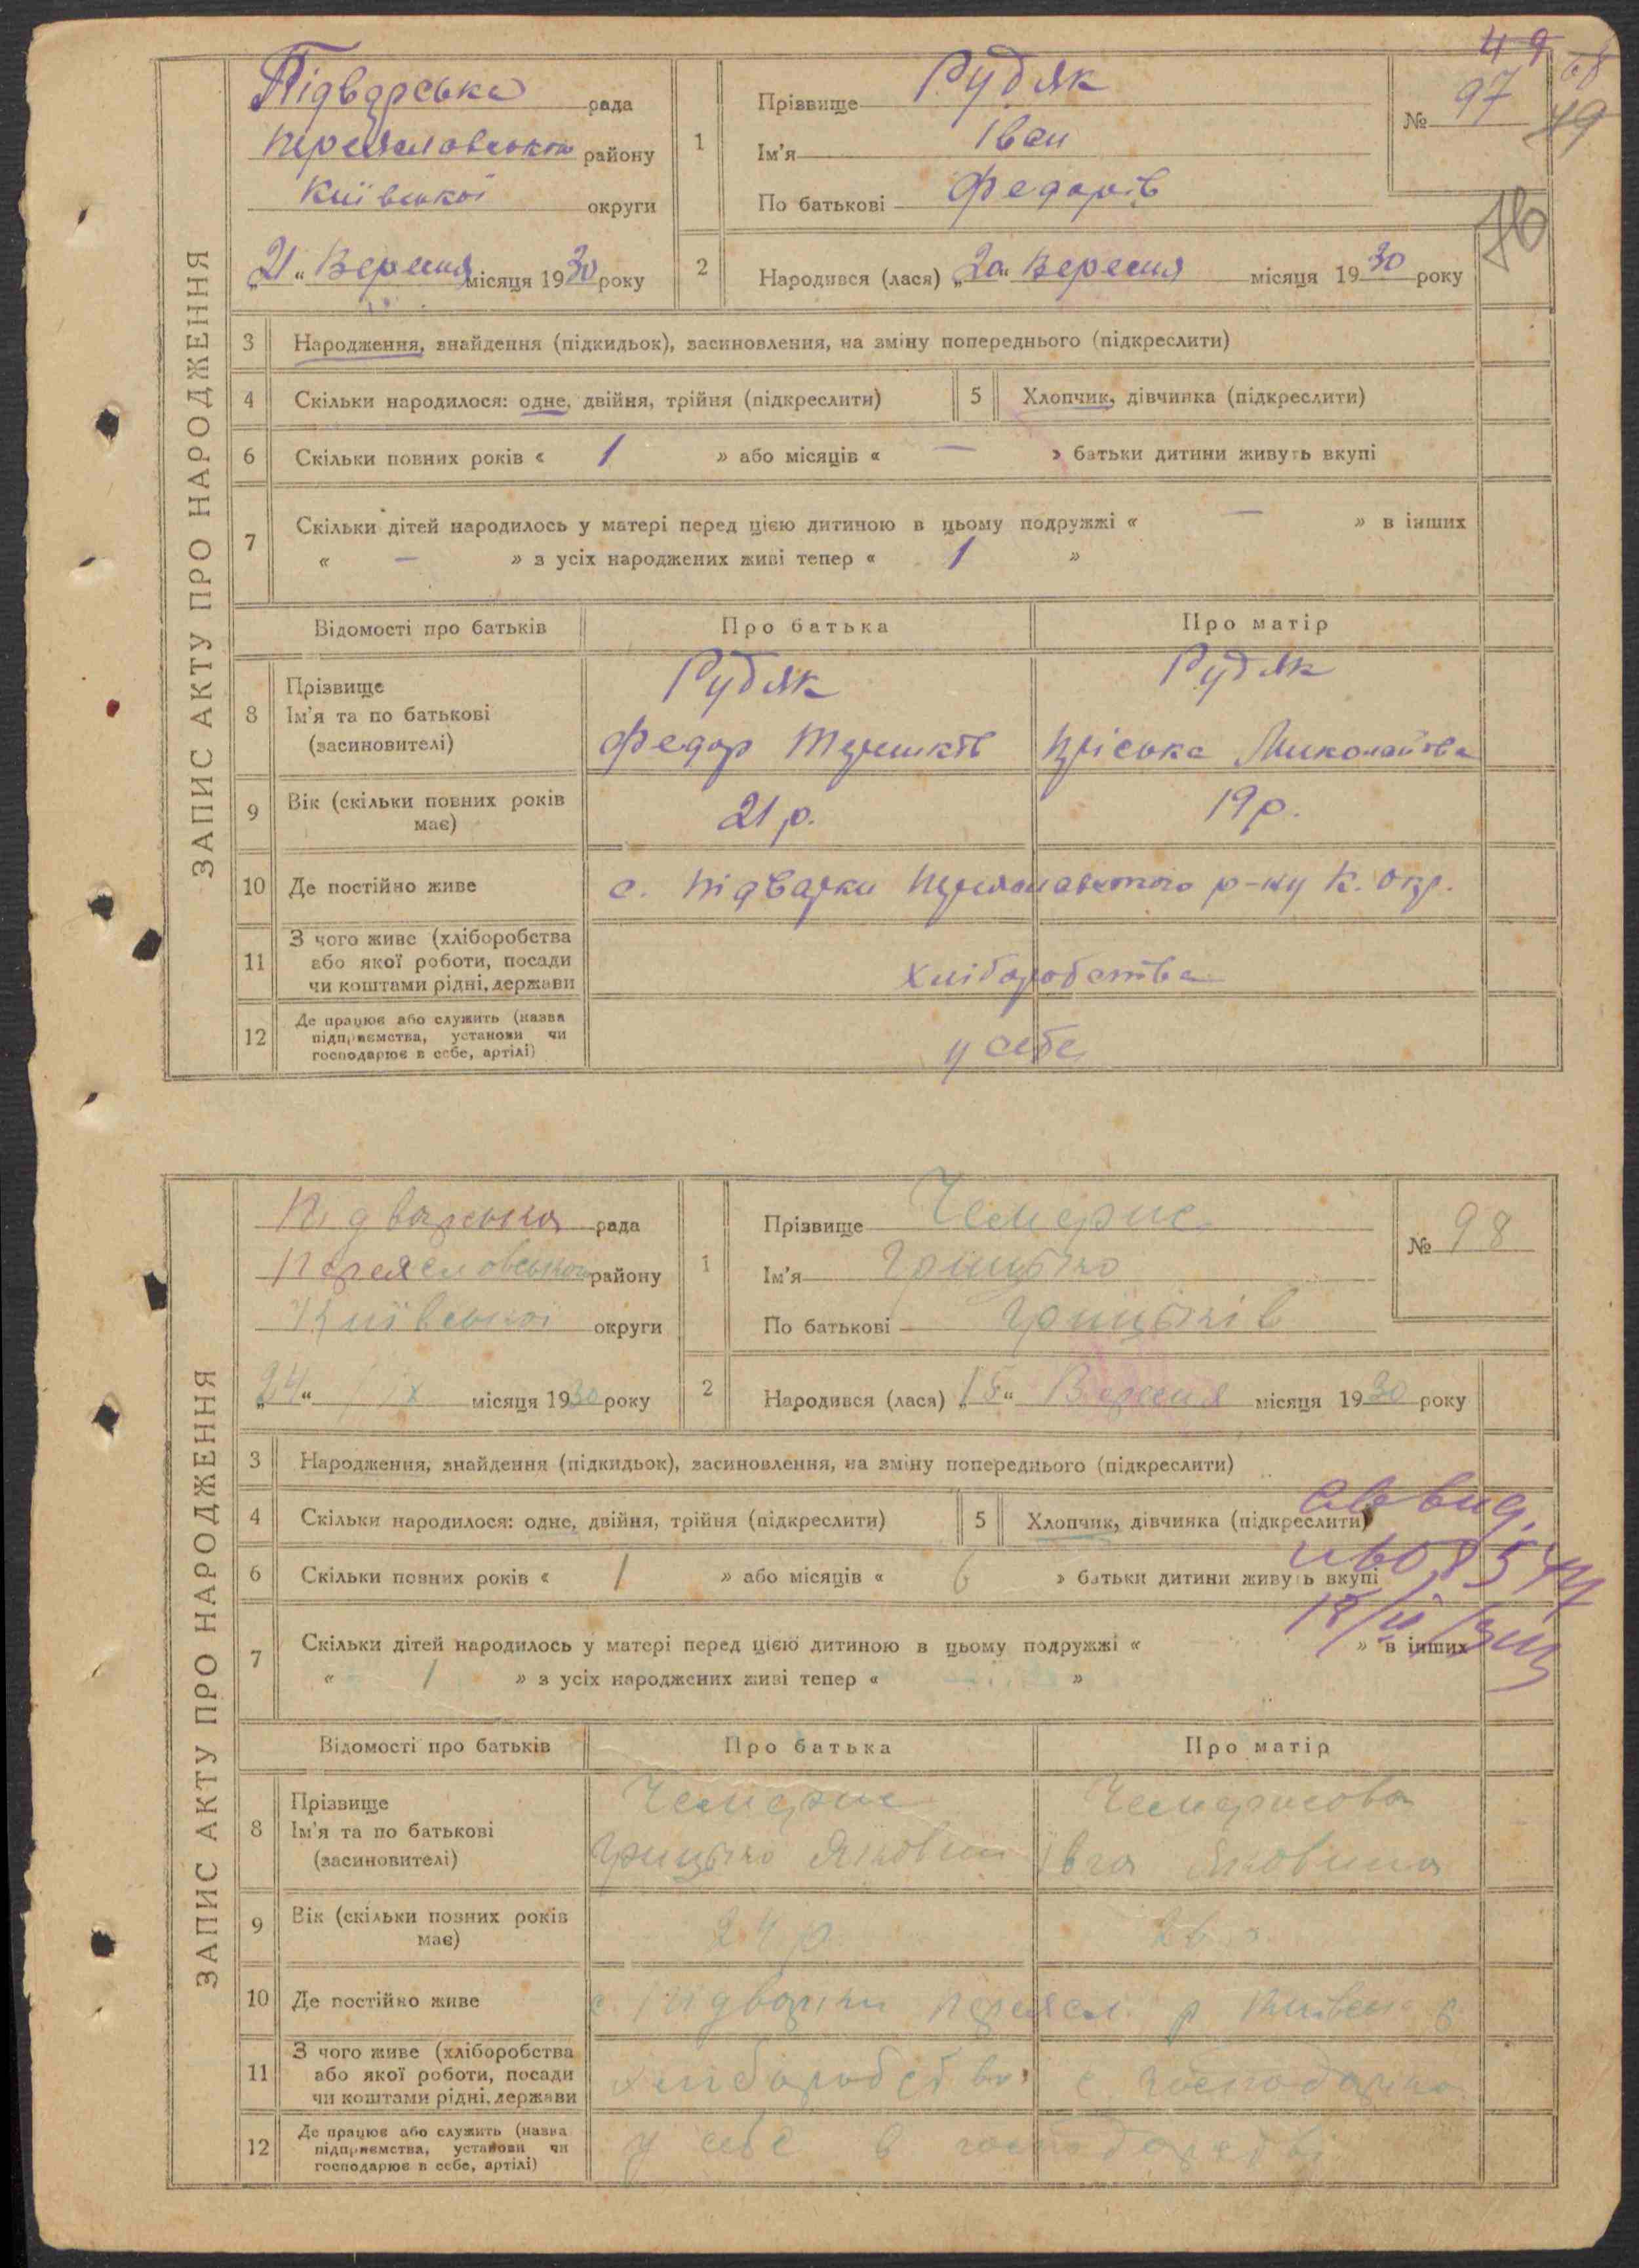 49
68
49
76
ЗАПИС АКТУ ПРО НАРОДЖЕННЯ
Підварська рада
Переяславського району
Київської округи
„21“ Вересня місяця 1930 року
1
Прізвище Рудяк
Ім'я Іван
По батькові Федорів
№ 97
2
Народився (лася) „20“ Вересня місяця 1930 року
3 Народження, знайдення (підкидьок), засиновлення, на зміну попереднього (підкреслити)
4 Скільки народилося: одне, двійня, трійня (підкреслити) 5 Хлопчик, дівчинка (підкреслити)
6 Скільки повних років « 1 » або місяців « — » батьки дитини живуть вкупі
7 Скільки дітей народилось у матері перед цією дитиною в цьому подружжі « — » в інших
« — » з усіх народжених живі тепер « 1 »
Відомості про батьків Про батька Про матір
8 Прізвище
Ім'я та по батькові
(засиновителі)
Рудяк
Федор Терешків
Рудяк
Пріська Миколаївна
9 Вік (скільки повних років має) 21 р. 19 р.
10 Де постійно живе с. Підварки Переяславського р-ну К. Окр.
11 З чого живе (хліборобства
або якої роботи, посади
чи коштами рідні, держави
хліборобства
12 Де працює або служить (назва
підприємства, установи чи
господарює в себе, артілі)
у себе
ЗАПИС АКТУ ПРО НАРОДЖЕННЯ
Підварська рада
Переясловського району
Київської округи
„24“ IX місяця 1930 року
1
Прізвище Чемерис
Ім'я Грицько
По батькові Грицьків
№ 98
2
Народився (лася) „15“ Вересня місяця 1930 року
3 Народження, знайдення (підкидьок), засиновлення, на зміну попереднього (підкреслити)
4 Скільки народилося: одне, двійня, трійня (підкреслити) 5 Хлопчик, дівчинка (підкреслити)
6 Скільки повних років « 1 » або місяців « 6 » батьки дитини живуть вкупі
7 Скільки дітей народилось у матері перед цією дитиною в цьому подружжі « » в інших
« 1 » з усіх народжених живі тепер « »
Відомості про батьків Про батька Про матір
8 Прізвище
Ім'я та по батькові
(засиновителі)
Чемерис
Грицько Якович
Чемерисова
Івга Яковина
9 Вік (скільки повних років має) 24 р. 26
10 Де постійно живе с. Підварки Переясл. р
11 З чого живе (хліборобства
або якої роботи, посади
чи коштами рідні, держави
хліборобство с. господарки
12 Де працює або служить (назва
підприємства, установи чи
господарює в себе, артілі)
у себе в господарстві